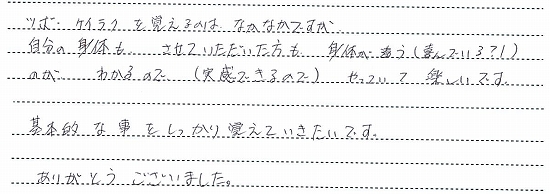 ツボ・ケイラクを覚えるのは なかなかですが
自分の身体も させていただいた方も 身体が違う(喜んでいる?!)
のが わかるので (実感できるので) やっていて 楽しいです。
基本的な事をしっかり覚えていきたいです。
ありがとうございました。